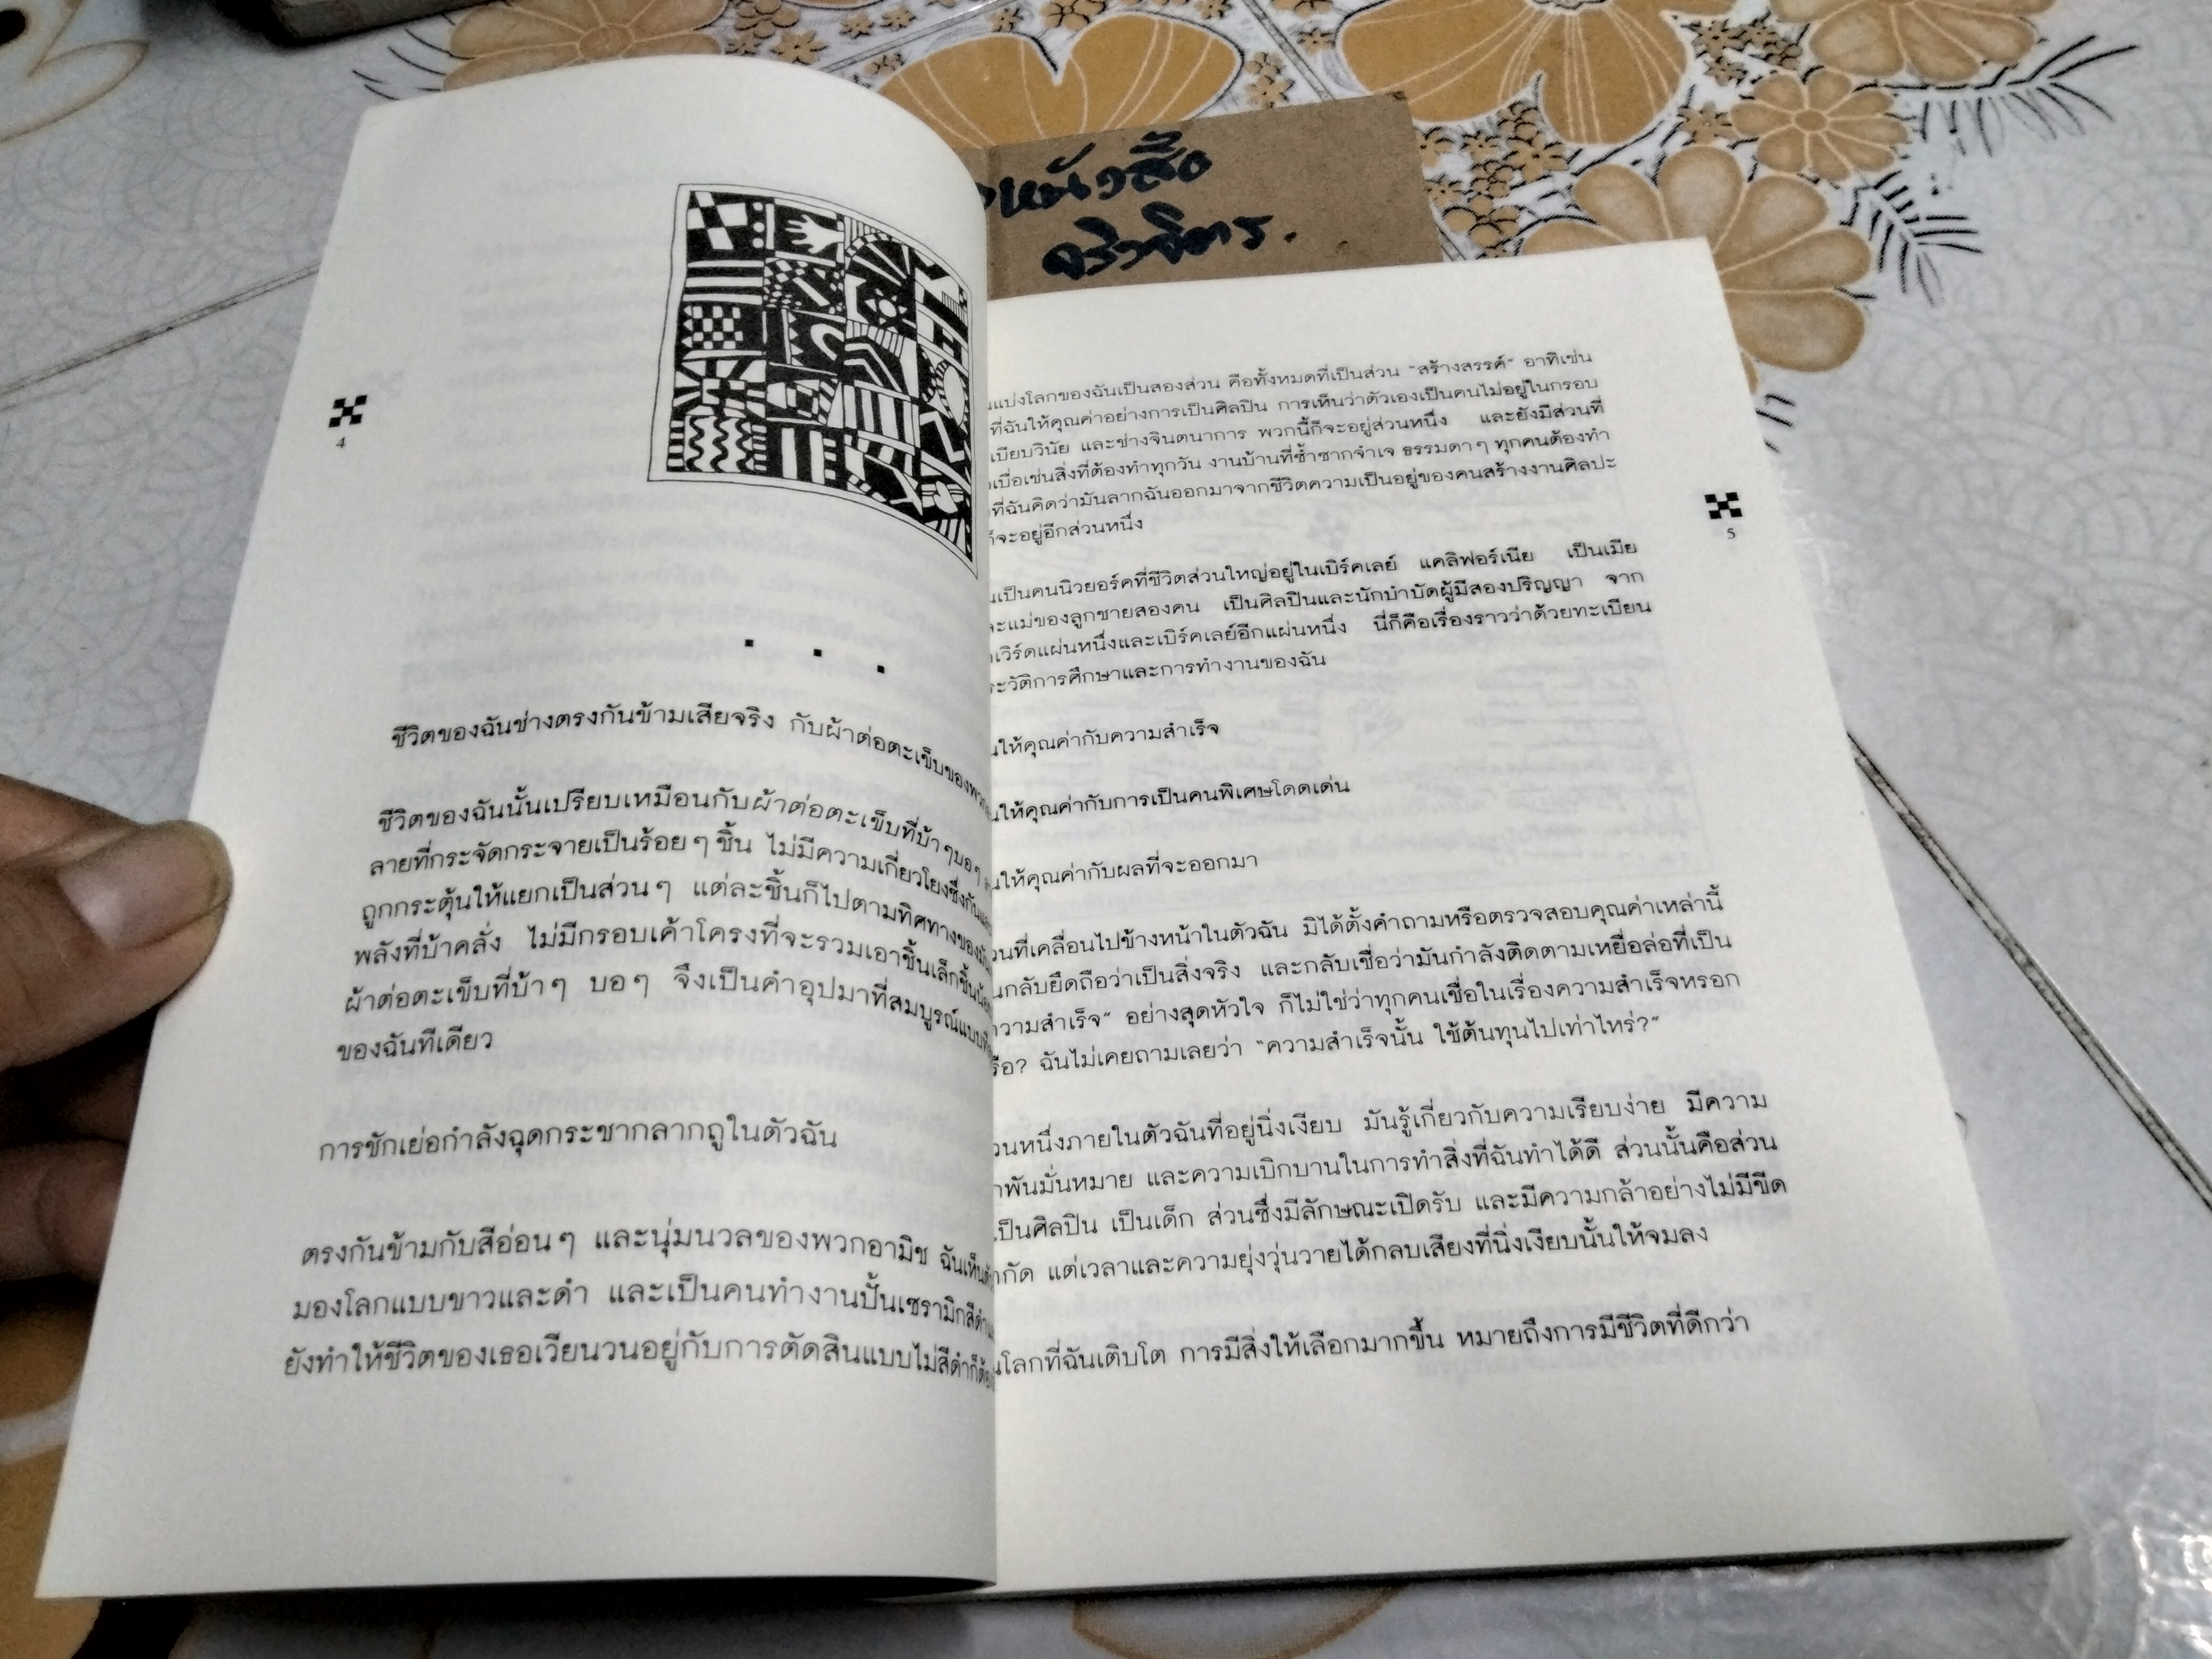 หนังสือ
จริงจิตร.
4
ชีวิตของฉันช่างตรงกันข้ามเสียจริง กับผ้าต่อตะเข็บของพวก
ชีวิตของฉันนั้นเปรียบเหมือนกับผ้าต่อตะเข็บที่บ้าๆบอๆ
ลายที่กระจัดกระจายเป็นร้อยๆ ชิ้น ไม่มีความเกี่ยวโยงซึ่งกันและ
ถูกกระตุ้นให้แยกเป็นส่วนๆ แต่ละชิ้นก็ไปตามทิศทางของ
พลังที่บ้าคลั่ง ไม่มีกรอบเค้าโครงที่จะรวมเอาชิ้นเล็กชิ้นน้อย
ผ้าต่อตะเข็บที่บ้าๆ บอๆ จึงเป็นคำอุปมาที่สมบูรณ์แบบ
ของฉันทีเดียว
การชักเย่อกำลังฉุดกระชากลากถูในตัวฉัน
ตรงกันข้ามกับสีอ่อนๆ และนุ่มนวลของพวกอามิช ฉันเห็น
มองโลกแบบขาวและดำ และเป็นคนทำงานปั้นเซรามิกสีดำ
ยังทำให้ชีวิตของเธอเวียนวนอยู่กับการตัดสินแบบไม่สีดำก็ต้อง
5
แบ่งโลกของฉันเป็นสองส่วน คือทั้งหมดที่เป็นส่วน "สร้างสรรค์" อาทิเช่น
ที่ฉันให้คุณค่าอย่างการเป็นศิลปิน การเห็นว่าตัวเองเป็นคนไม่อยู่ในกรอบ
เบียบวินัย และช่างจินตนาการ พวกนี้ก็จะอยู่ส่วนหนึ่ง และยังมีส่วนที่
เบื่อเช่นสิ่งที่ต้องทำทุกวัน งานบ้านที่ซ้ำซากจำเจ ธรรมดาๆ ทุกคนต้องทำ
ที่ฉันคิดว่ามันลากฉันออกมาจากชีวิตความเป็นอยู่ของคนสร้างงานศิลปะ
ก็จะอยู่อีกส่วนหนึ่ง
เป็นคนนิวยอร์คที่ชีวิตส่วนใหญ่อยู่ในเบิร์คเลย์ แคลิฟอร์เนีย เป็นเมีย
และแม่ของลูกชายสองคน เป็นศิลปินและนักบำบัดผู้มีสองปริญญา จาก
เวิร์ดแผ่นหนึ่งและเบิร์คเลย์อีกแผ่นหนึ่ง นี่ก็คือเรื่องราวว่าด้วยทะเบียน
ระวัติการศึกษาและการทำงานของฉัน
ให้คุณค่ากับความสำเร็จ
ให้คุณค่ากับการเป็นคนพิเศษโดดเด่น
ให้คุณค่ากับผลที่จะออกมา
วนที่เคลื่อนไปข้างหน้าในตัวฉัน มิได้ตั้งคำถามหรือตรวจสอบคุณค่าเหล่านี้
นกลับยึดถือว่าเป็นสิ่งจริง และกลับเชื่อว่ามันกำลังติดตามเหยื่อล่อที่เป็น
ความสำเร็จ" อย่างสุดหัวใจ ก็ไม่ใช่ว่าทุกคนเชื่อในเรื่องความสำเร็จหรอก
รือ? ฉันไม่เคยถามเลยว่า "ความสำเร็จนั้น ใช้ต้นทุนไปเท่าไหร่?"
วนหนึ่งภายในตัวฉันที่อยู่นิ่งเงียบ มันรู้เกี่ยวกับความเรียบง่าย มีความ
พันมั่นหมาย และความเบิกบานในการทำสิ่งที่ฉันทำได้ดี ส่วนนั้นคือส่วน
เป็นศิลปิน เป็นเด็ก ส่วนซึ่งมีลักษณะเปิดรับ และมีความกล้าอย่างไม่มีขีด
กัด แต่เวลาและความยุ่งวุ่นวายได้กลบเสียงที่นิ่งเงียบนั้นให้จมลง
โลกที่ฉันเติบโต การมีสิ่งให้เลือกมากขึ้น หมายถึงการมีชีวิตที่ดีกว่า